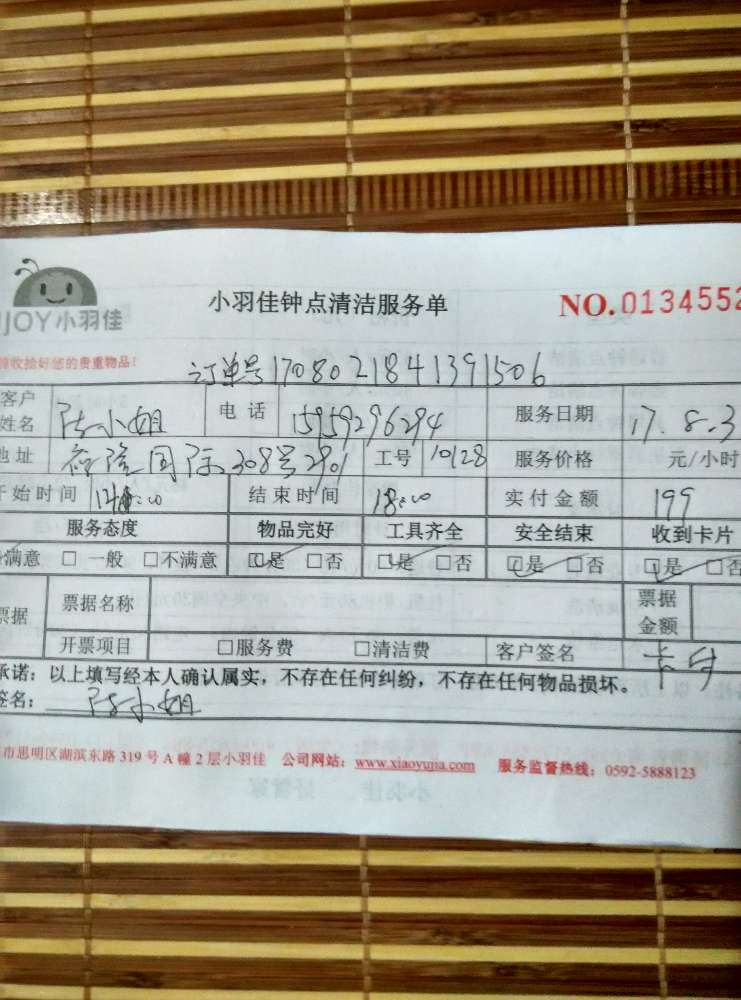 小羽佳钟点清洁服务单 NO.0134552
JOY小羽佳
收拾好您的贵重物品!
订单号1708021841391506
客户姓名 陈小姐 电话 15959296294 服务日期 17.8.3
地址 国际308号2901 工号 10128 服务价格 元/小时
开始时间 结束时间 18:00 实付金额 199
服务态度 物品完好 工具齐全 安全结束 收到卡片
满意 □ 一般 □不满意 □是 □否 □是 □否 □是 □否 □是 □否
票据 票据名称 票据金额
开票项目 □服务费 □清洁费 客户签名 卡付
承诺:以上填写经本人确认属实,不存在任何纠纷,不存在任何物品损坏。
签名: 陈小姐
市思明区湖滨东路319号A幢2层小羽佳 公司网站:www.xiaoyujia.com 服务监督热线:0592-5888123